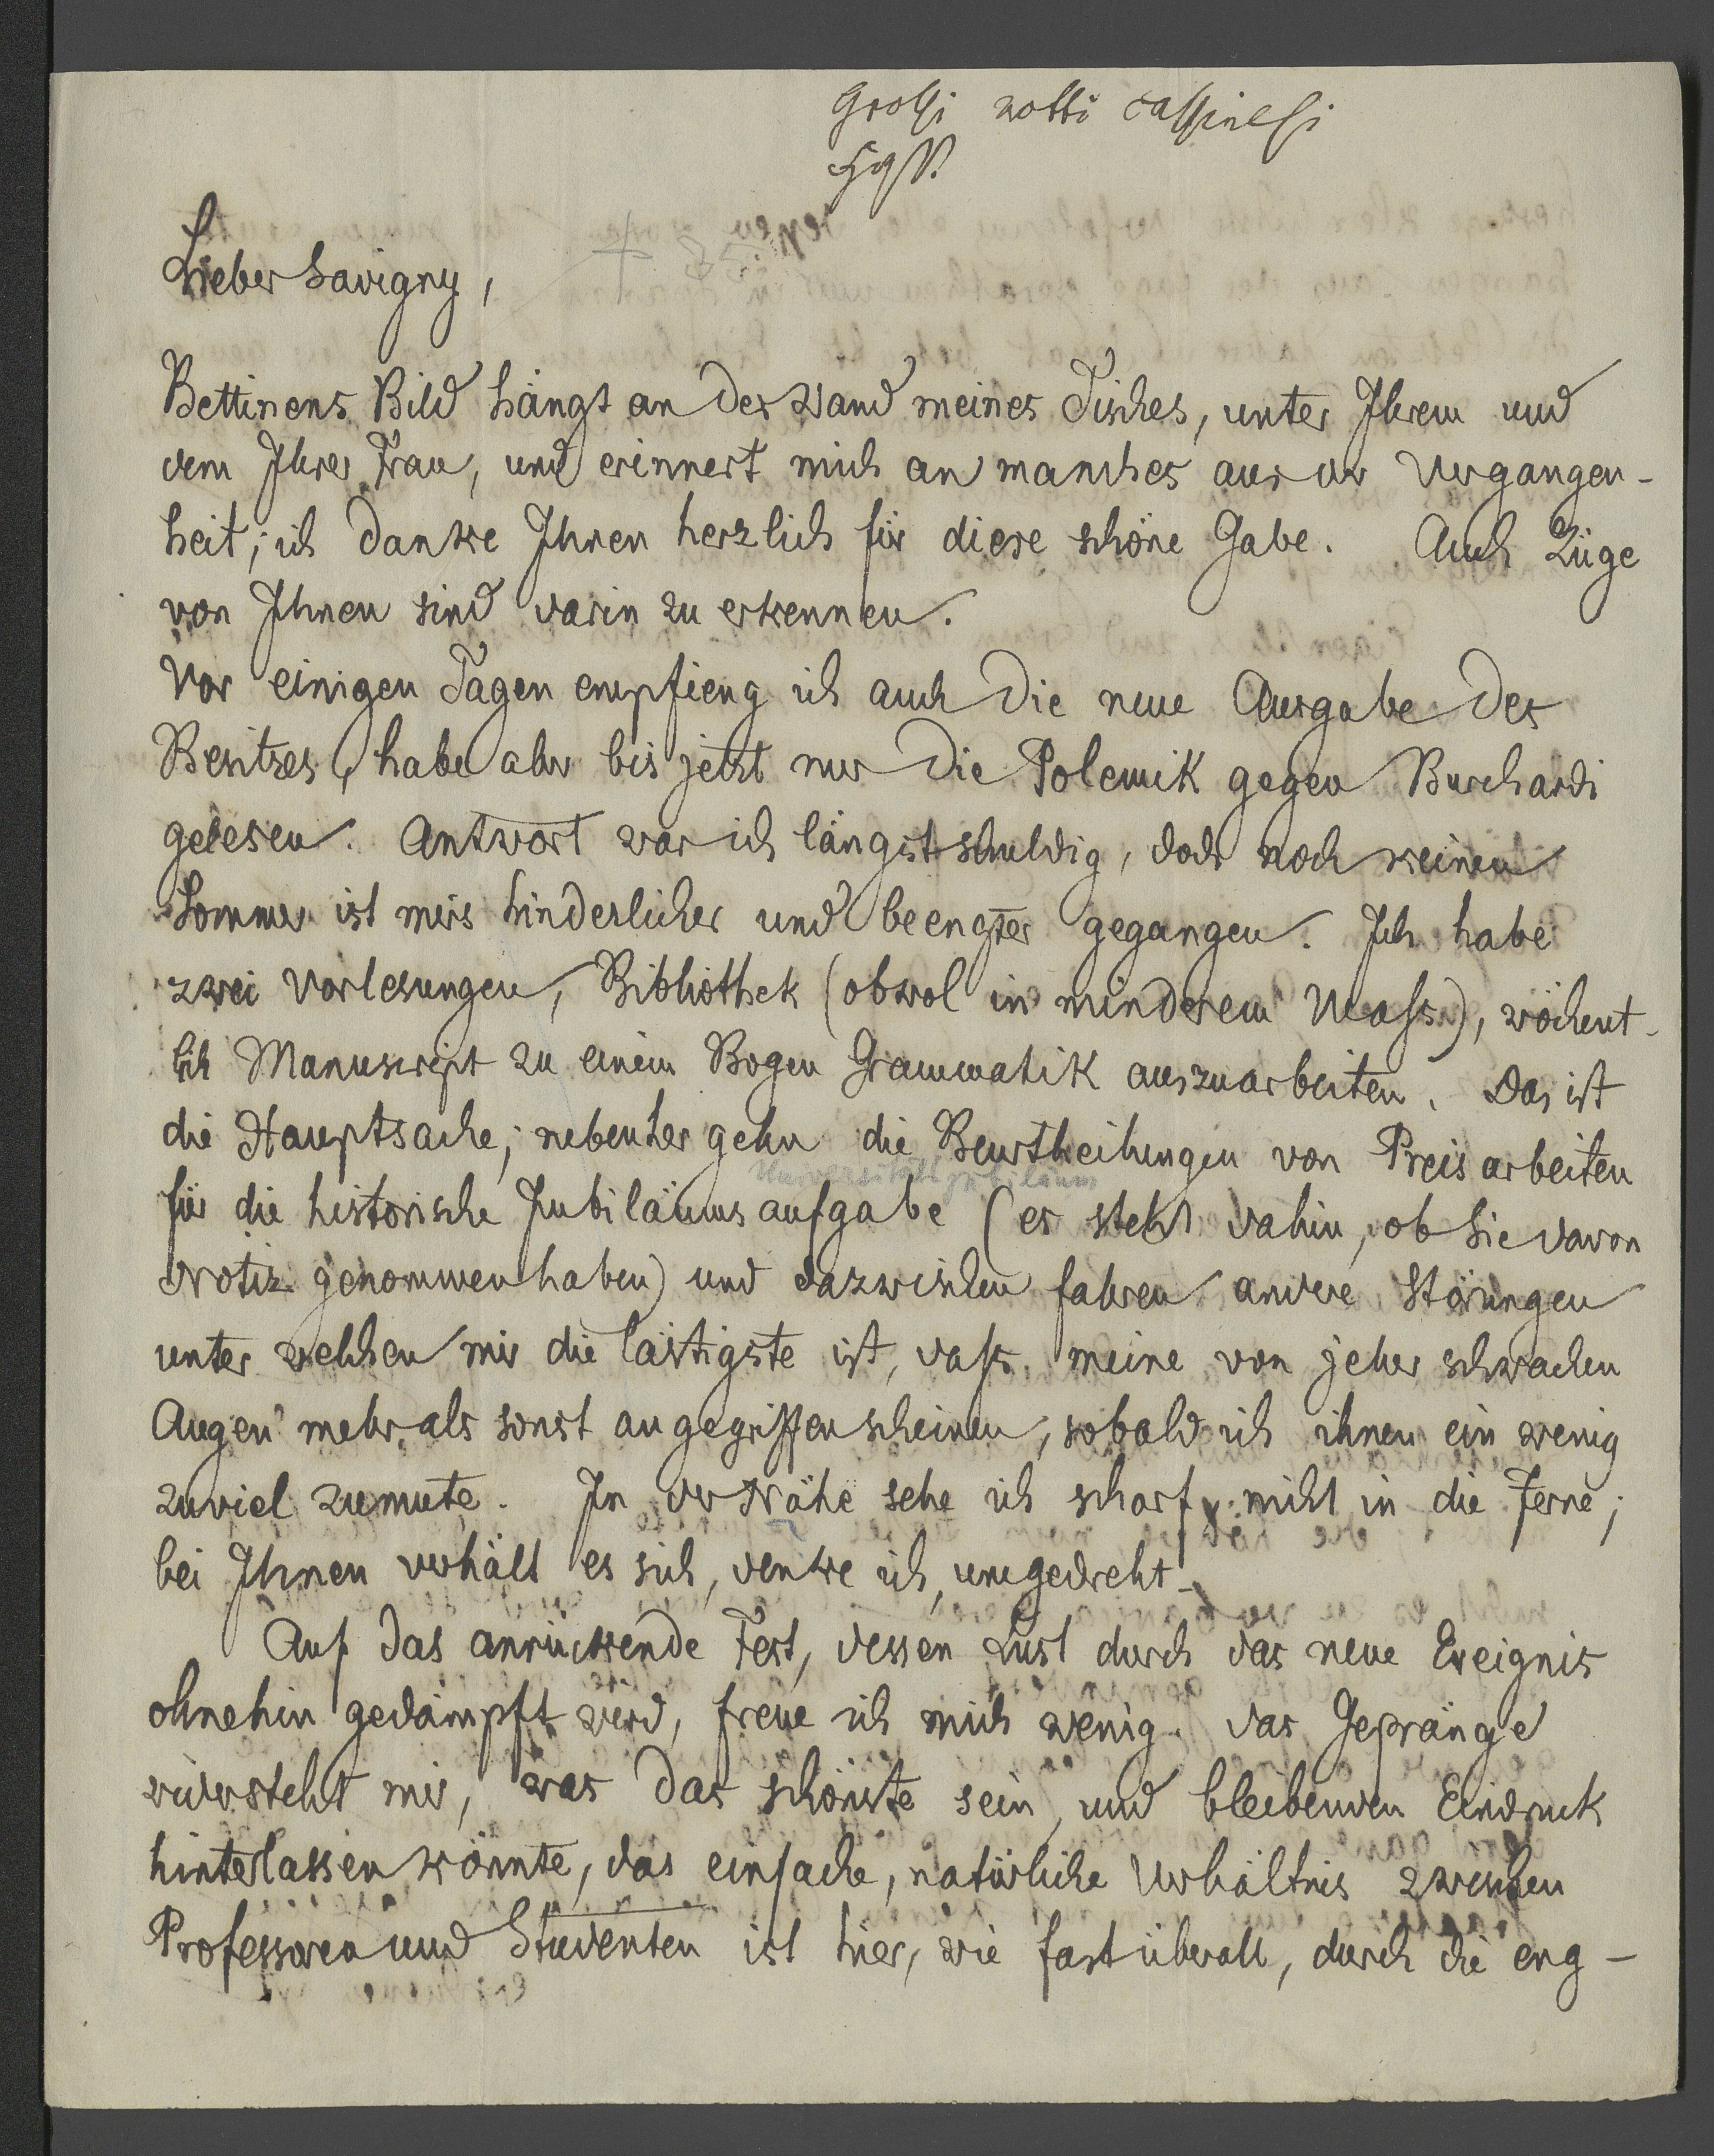 Lieber Savigny,
Bettinens Bild hängt an der Wand meines Tisches, unter Ihrem und
dem Ihrer Frau, und erinnert mich an manches aus der Vergangen-
heit; ich danke Ihnen herzlich für diese schöne Gabe. Auch Züge
von Ihnen sind darin zu erkennen.
Vor einigen Tagen empfieng ich auch die neue Ausgabe des
Besitzes, habe aber bis jetzt nur die Polemik gegen Burchardi
gelesen. Antwort war ich längst schuldig, doch noch keinen
Sommer ist mirs hinderlicher und beengter gegangen. Ich habe
zwei Vorlesungen, Bibliothek (obwol in minderem Maſs), wöchent-
lich Manuscript zu einem Bogen Grammatik auszuarbeiten. Das ist
die Hauptsache; nebenher gehn die Beurtheilungen von Preisarbeiten
Universitätsjubiläum
für die historische Jubiläumsaufgabe (es steht dahin, ob Sie davon
Notiz genommen haben) und dazwischen fahren andere Störungen
unter welchen mir die lästigste ist, daſs meine von jeher schwachen
Augen mehr als sonst angegriffen scheinen, sobald ich ihnen ein wenig
zuviel zumute. In der Nähe sehe ich scharf, nicht in die Ferne;
bei Ihnen verhält es sich, denke ich, umgedreht.
Auf das anrückende Fest, dessen Lust durch das neue Ereignis
ohnehin gedämpft wird, freue ich mich wenig. das Gepränge
widersteht mir, was das schönste sein, und bleibenden Eindruck
hinterlassen könnte, das einfache, natürliche Verhältnis zwischen
Professoren und Studenten ist hier, wie fast überall, durch die eng-